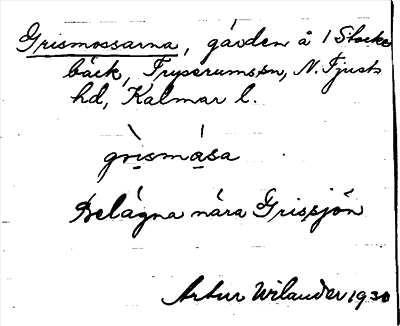 Grismossarna, gården å 1 Stocke
bäck, Tryserums sn, N. Tjusts
hd, Kalmar l.
grìsmása
Belägna nära Grissjön
Artur Wilander 1930